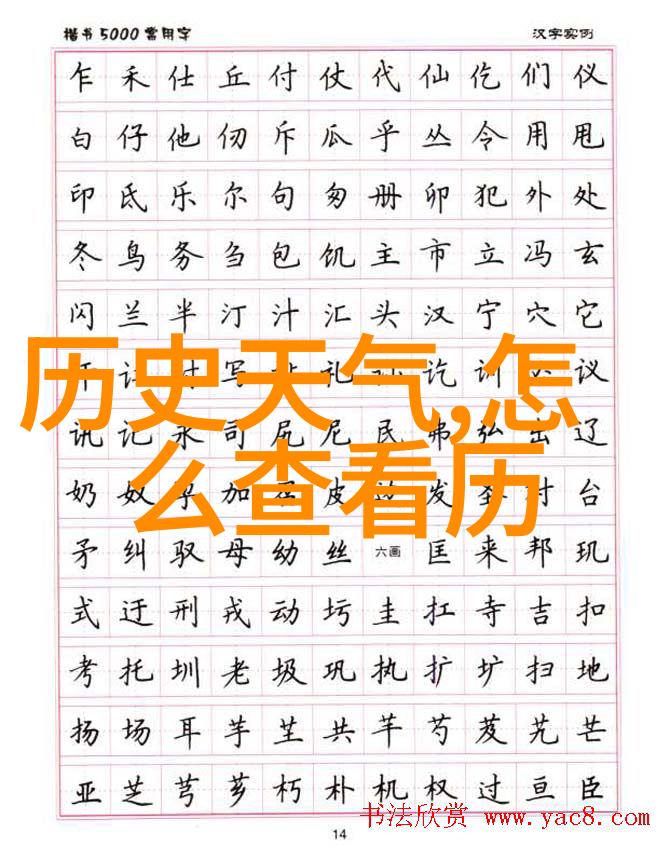 楷书5000常用字 汉字实例
乍禾仕丘付仗代仙仡们仪
白仔他仞斥瓜乎丛令用甩
印氐乐尔句匆册卯犯外处
冬鸟务刍包饥主市立冯玄
闪兰半汀汁汇头汉宁穴它
写礼讫训议
历史天气,怎
讯记永司尻尼民弗弘出辽
么查看历
奶奴加皮发台
矛纠驭母幼丝六画匡耒邦玑
式迂刑戎动圬圭扛寺吉扣
考托圳老圾巩执扩圹扫地
扬场耳芋芏共芊芍芨艽芒
亚芝芎芗朽朴机权过亘臣
书法欣赏 www.yac8.com
14